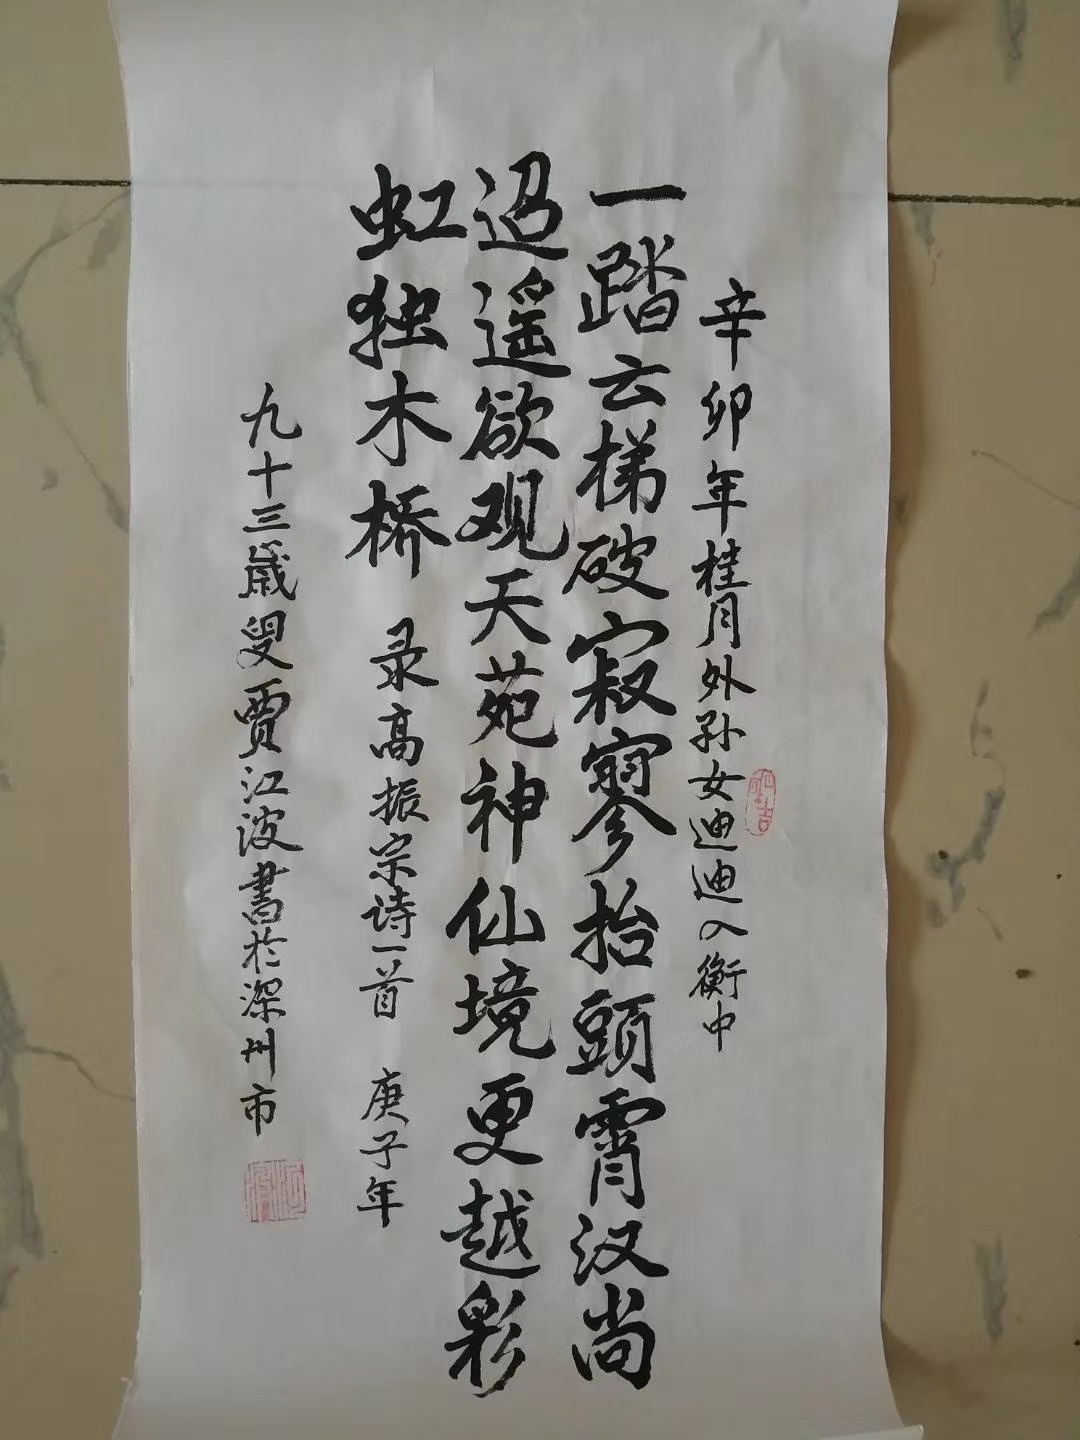 辛卯年桂月外孙女迪迪入衡中
一踏云梯破寂寥抬頭霄汉尚
迢遥欲观天苑神仙境更越彩
虹独木桥 录高振宗诗一首 庚子年
九十三歲叟賈江波書於深州市